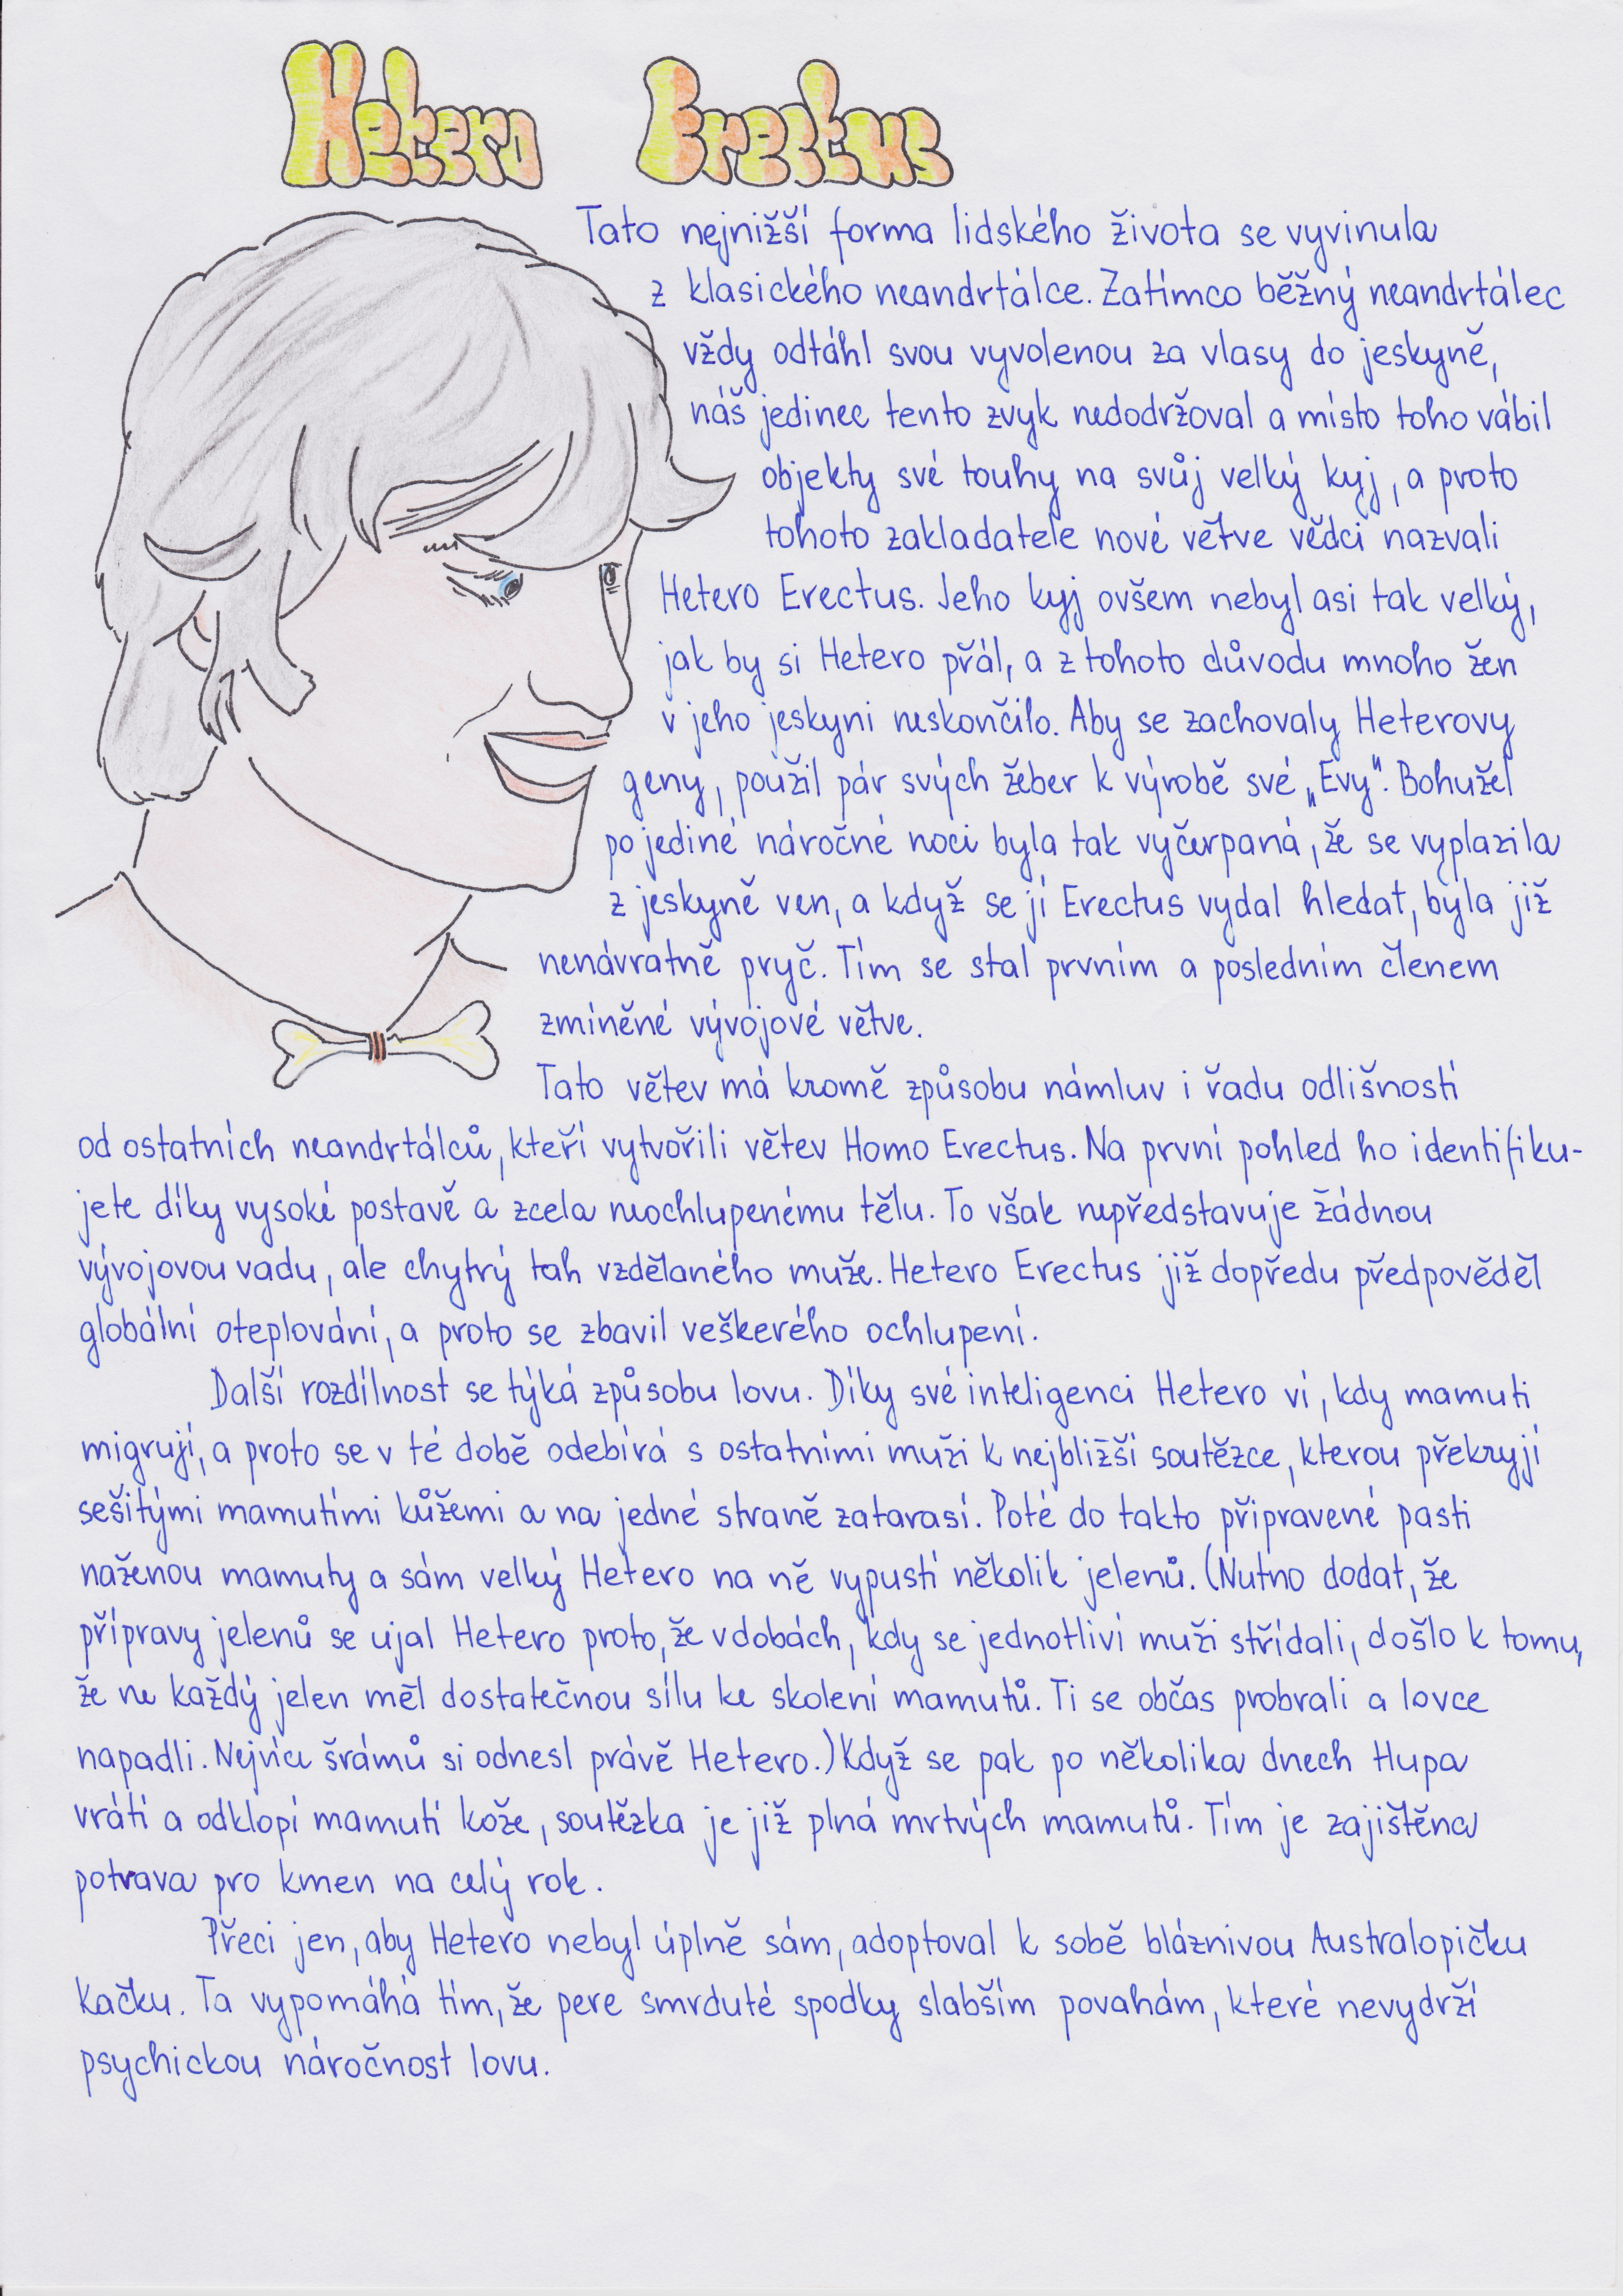 Hetero Erectus
Tato nejnižší forma lidského života se vyvinula
z klasického neandrtálce. Zatímco běžný neandrtálec
vždy odtáhl svou vyvolenou za vlasy do jeskyně,
náš jedinec tento zvyk nedodržoval a místo toho vábil
objekty své touhy na svůj velký kyj, a proto
tohoto zakladatele nové větve vědci nazvali
Hetero Erectus. Jeho kyj ovšem nebyl asi tak velký,
jak by si Hetero přál, a z tohoto důvodu mnoho žen
v jeho jeskyni neskončilo. Aby se zachovaly Heterovy
geny, použil pár svých žeber k výrobě své „Evy“. Bohužel
po jediné náročné noci byla tak vyčerpaná, že se vyplazila
z jeskyně ven, a když se jí Erectus vydal hledat, byla již
nenávratně pryč. Tím se stal prvním a posledním členem
zmíněné vývojové větve.
Tato větev má kromě způsobu námluv i řadu odlišností
od ostatních neandrtálců, kteří vytvořili větev Homo Erectus. Na první pohled ho identifiku-
jete díky vysoké postavě a zcela neochlupenému tělu. To však nepředstavuje žádnou
vývojovou vadu, ale chytrý tah vzdělaného muže. Hetero Erectus již dopředu předpověděl
globální oteplování, a proto se zbavil veškerého ochlupení.
Další rozdílnost se týká způsobu lovu. Díky své inteligenci Hetero ví, kdy mamuti
migrují, a proto se v té době odebírá s ostatními muži k nejbližší soutězce, kterou překryjí
sešitými mamutími kůžemi a na jedné straně zatarasí. Poté do takto připravené pasti
naženou mamuty a sám velký Hetero na ně vypustí několik jelenů. (Nutno dodat, že
přípravy jelenů se ujal Hetero proto, že v dobách, kdy se jednotliví muži střídali, došlo k tomu,
že ne každý jelen měl dostatečnou sílu ke skolení mamutů. Ti se občas probrali a lovce
napadli. Nejvíce šrámů si odnesl právě Hetero.) Když se pak po několika dnech tlupa
vrátí a odklopí mamutí kože, soutězka je již plná mrtvých mamutů. Tím je zajištěna
potrava pro kmen na celý rok.
Přeci jen, aby Hetero nebyl úplně sám, adoptoval k sobě bláznivou Australopičku
Kačku. Ta vypomáhá tím, že pere smrduté spodky slabším povahám, které nevydrží
psychickou náročnost lovu.